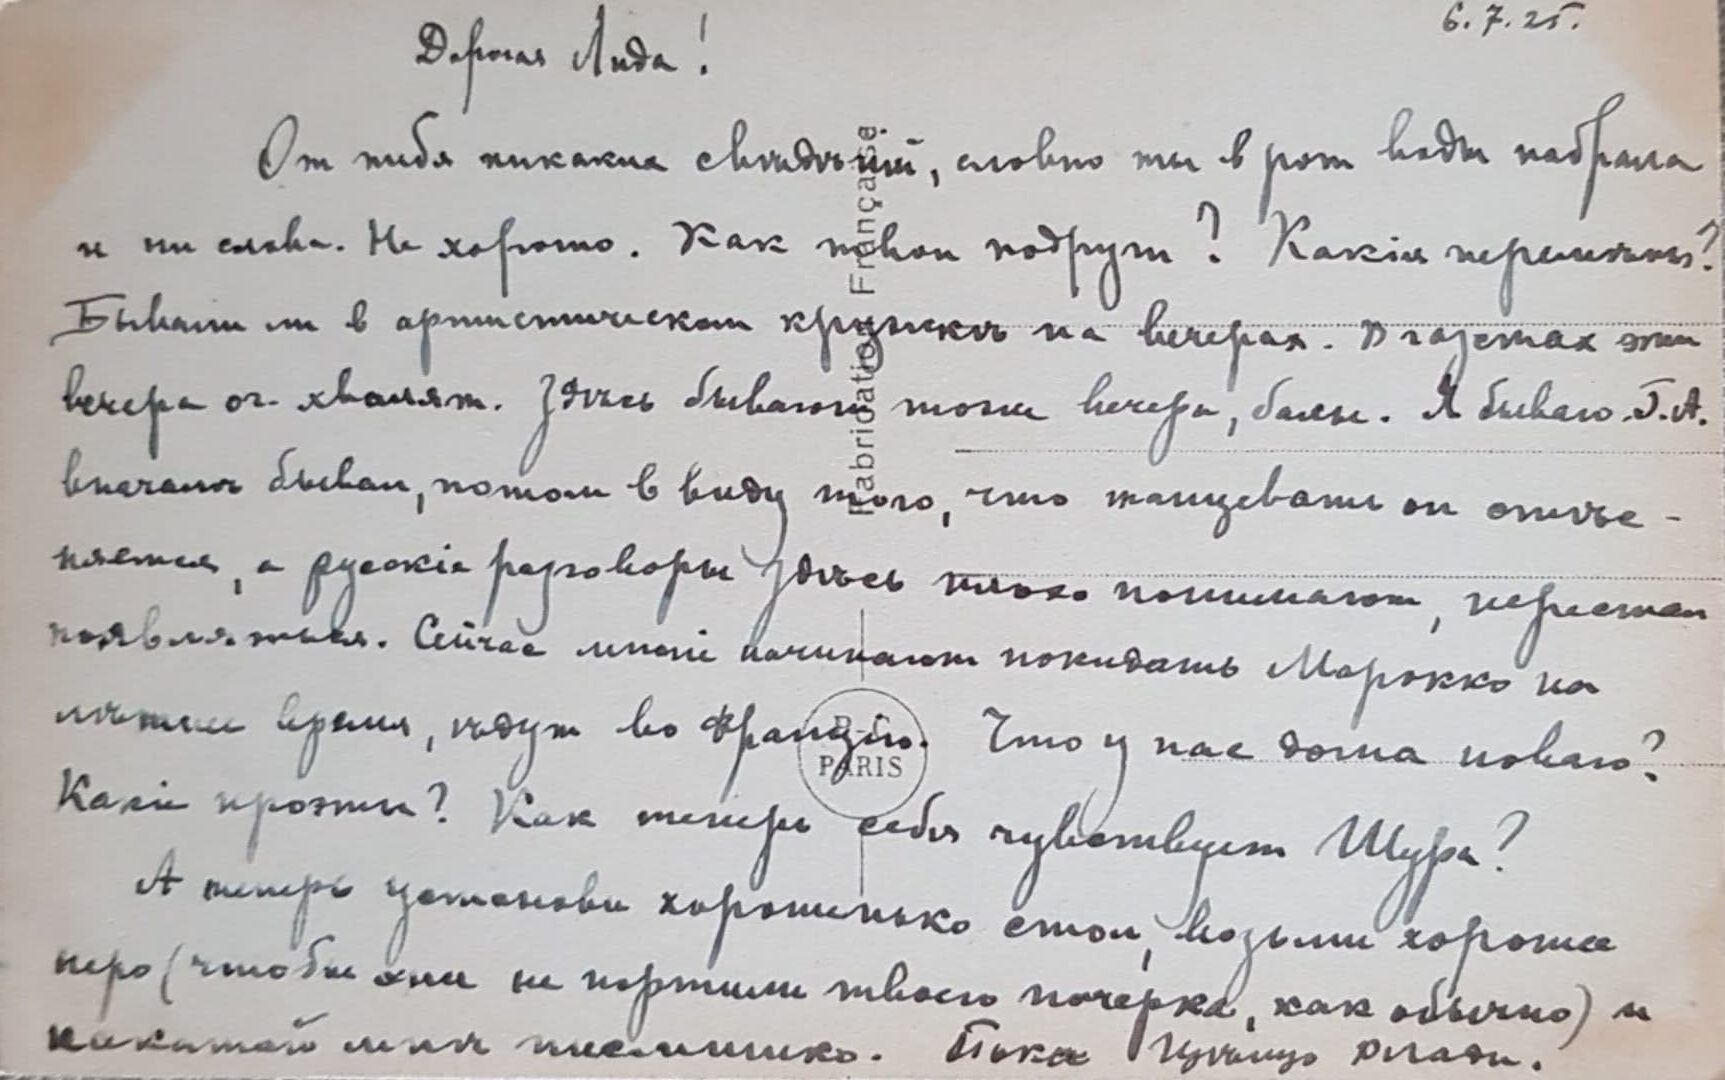 6.7.25.
Дорогая Лида!
От тебя никаких свѣдѣний, словно ты в рот воды набрала
и ни слова. Не хорошо. Как твои подруги? Какiя перемѣны?
Бываеш ли в артистическом кружкѣ на вечерах. В газетах эти
вечера оч. хвалят. Здѣсь бывают тоже вечера, балы. Я бываю. Г.А.
вначалѣ бывал, потом в виду того, что танцевать он стѣс-
няется, а русскiе разговоры здѣсь плохо понимают, перестал
появляться. Сейчас многiе начинают покидать Марокко на
лѣтнее время, ѣдут во Францiю. Что у нас дома новаго?
Какiе проэкты? Как теперь себя чувствует Шура?
А теперь установи хорошенько стол, возьми хорошее
перо (чтобы они не портили твоего почерка, как обычно) и
накатай мнѣ письмишко. Пока Цѣлую
Fabrication Française.
PARIS